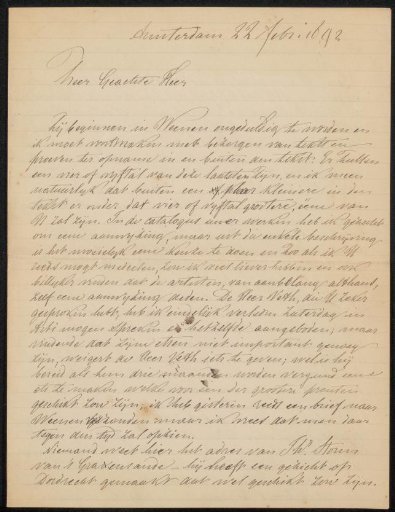 Amsterdam 22 Febr. 1892
Zeer Geachte Heer
Zij beginnen in Weenen ongeduldig te worden en
ik moet voortmaken met bezorgen van tekst en
prenten ter opname in en buiten den tekst. Er zullen
een vier of vyftal van deze laatsten zijn, en ik meen
natuurlijk dat buiten een paar kleinere in den
tekst er onder dat vier of vyftal grootere, eene van
U zal zijn. In de catalogus uwer werken heb ik gezocht
om eene aanwijzing, maar uit de enkele beschrijving
is het moeielijk eene keuze te doen en zoo als ik U
reeds mogt mededeelen, zou ik veel liever hebben en ook
billijker vinden dat de artisten, van aanbelang althans,
zelf eene aanwijzing deden. De Heer Veth, die U zeker
gesproken hebt, heb ik eveneens verleden Zaterdag in
Arti mogen spreken en hetzelfde aangeboden; maar
vindende dat zijn etsen niet important genoeg
zijn, weigert de Heer Veth iets te geven; wel is hij
bereid als hem drie maanden worden vergund eene
ets te maken welke voor een der groote prenten
geschikt zou zijn; ik heb gisteren reeds een brief naar
Weenen gezonden maar ik vrees dat men daar
tegen den tijd zal opzien.
Niemand weet hier het adres van Th. Storm
van 's Gravesande - hij heeft een gezicht op
Dordrecht gemaakt dat wel geschikt zou zijn.